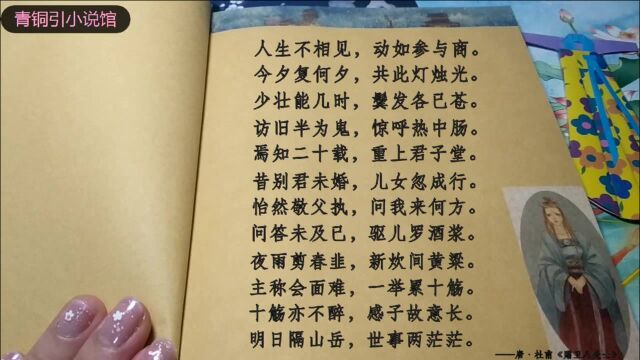 青铜引小说馆
人生不相见，动如参与商。
今夕复何夕，共此灯烛光。
少壮能几时，鬓发各已苍。
访旧半为鬼，惊呼热中肠。
焉知二十载，重上君子堂。
昔别君未婚，儿女忽成行。
怡然敬父执，问我来何方。
问答未及已，驱儿罗酒浆。
夜雨剪春韭，新炊间黄粱。
主称会面难，一举累十觞。
十觞亦不醉，感子故意长。
明日隔山岳，世事两茫茫。
——唐·杜甫